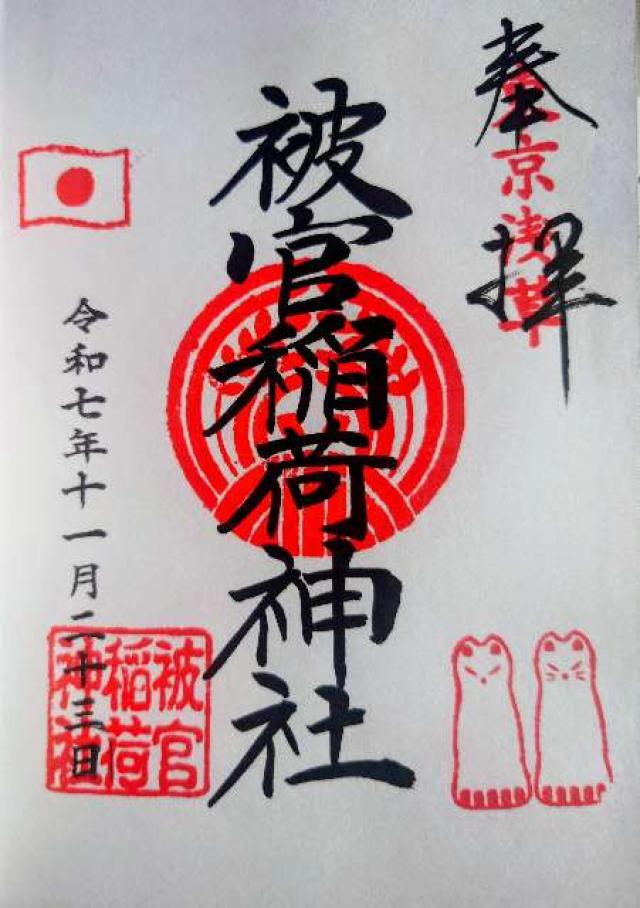 奉拝
東京浅草
被官稲荷神社
令和七年十一月二十三日
被官
稲荷
神社